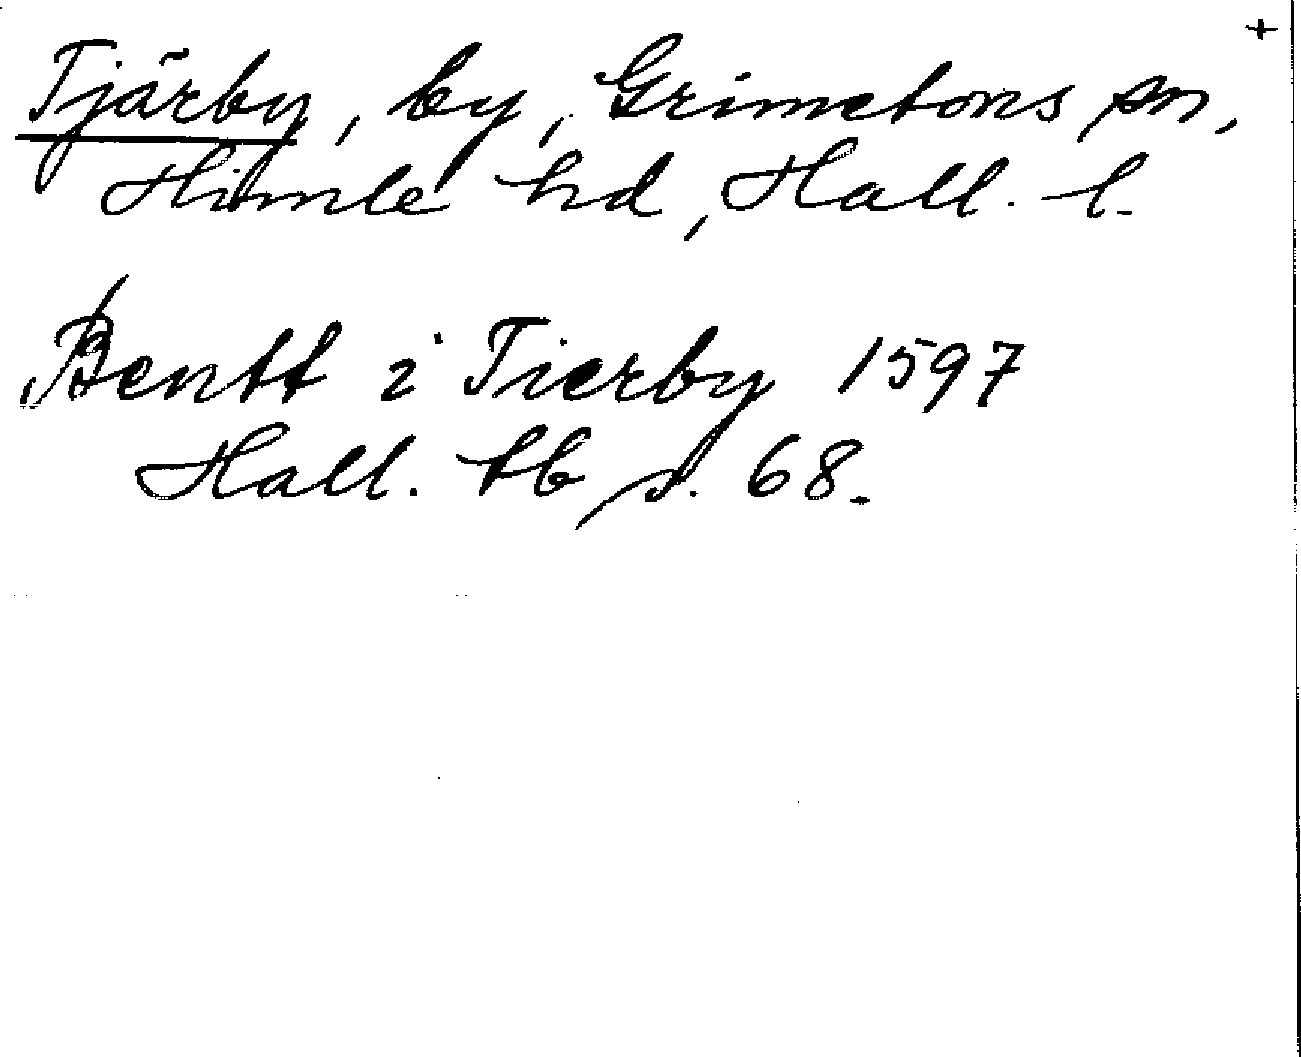 +
Tjärby, by, Grimetons sn,
Himle hd, Hall. l.
Bentt i Tierby 1597
Hall. tb s. 68.